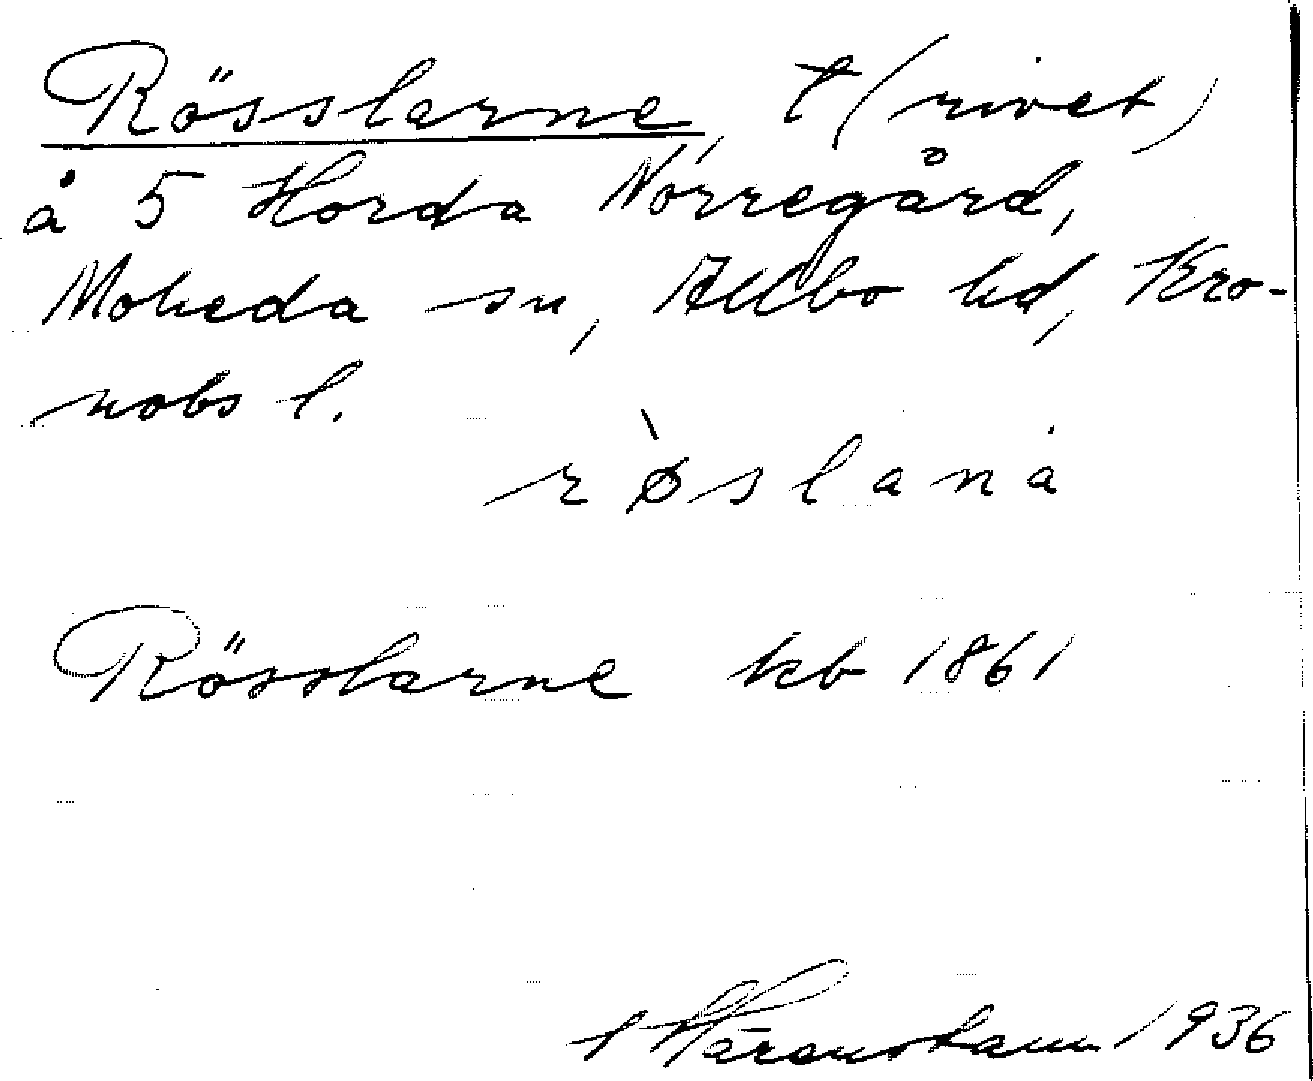 Rösslarne, t (rivet)
å 5 Horda Norregård,
Moheda sn, Allbo hd, Kro-
nobs l.
røslana
Rösslarne kb 1861
1936